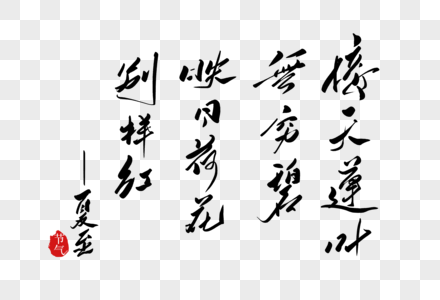 接天蓮叶
無穷碧
映日荷花
别样红
—夏至
节气